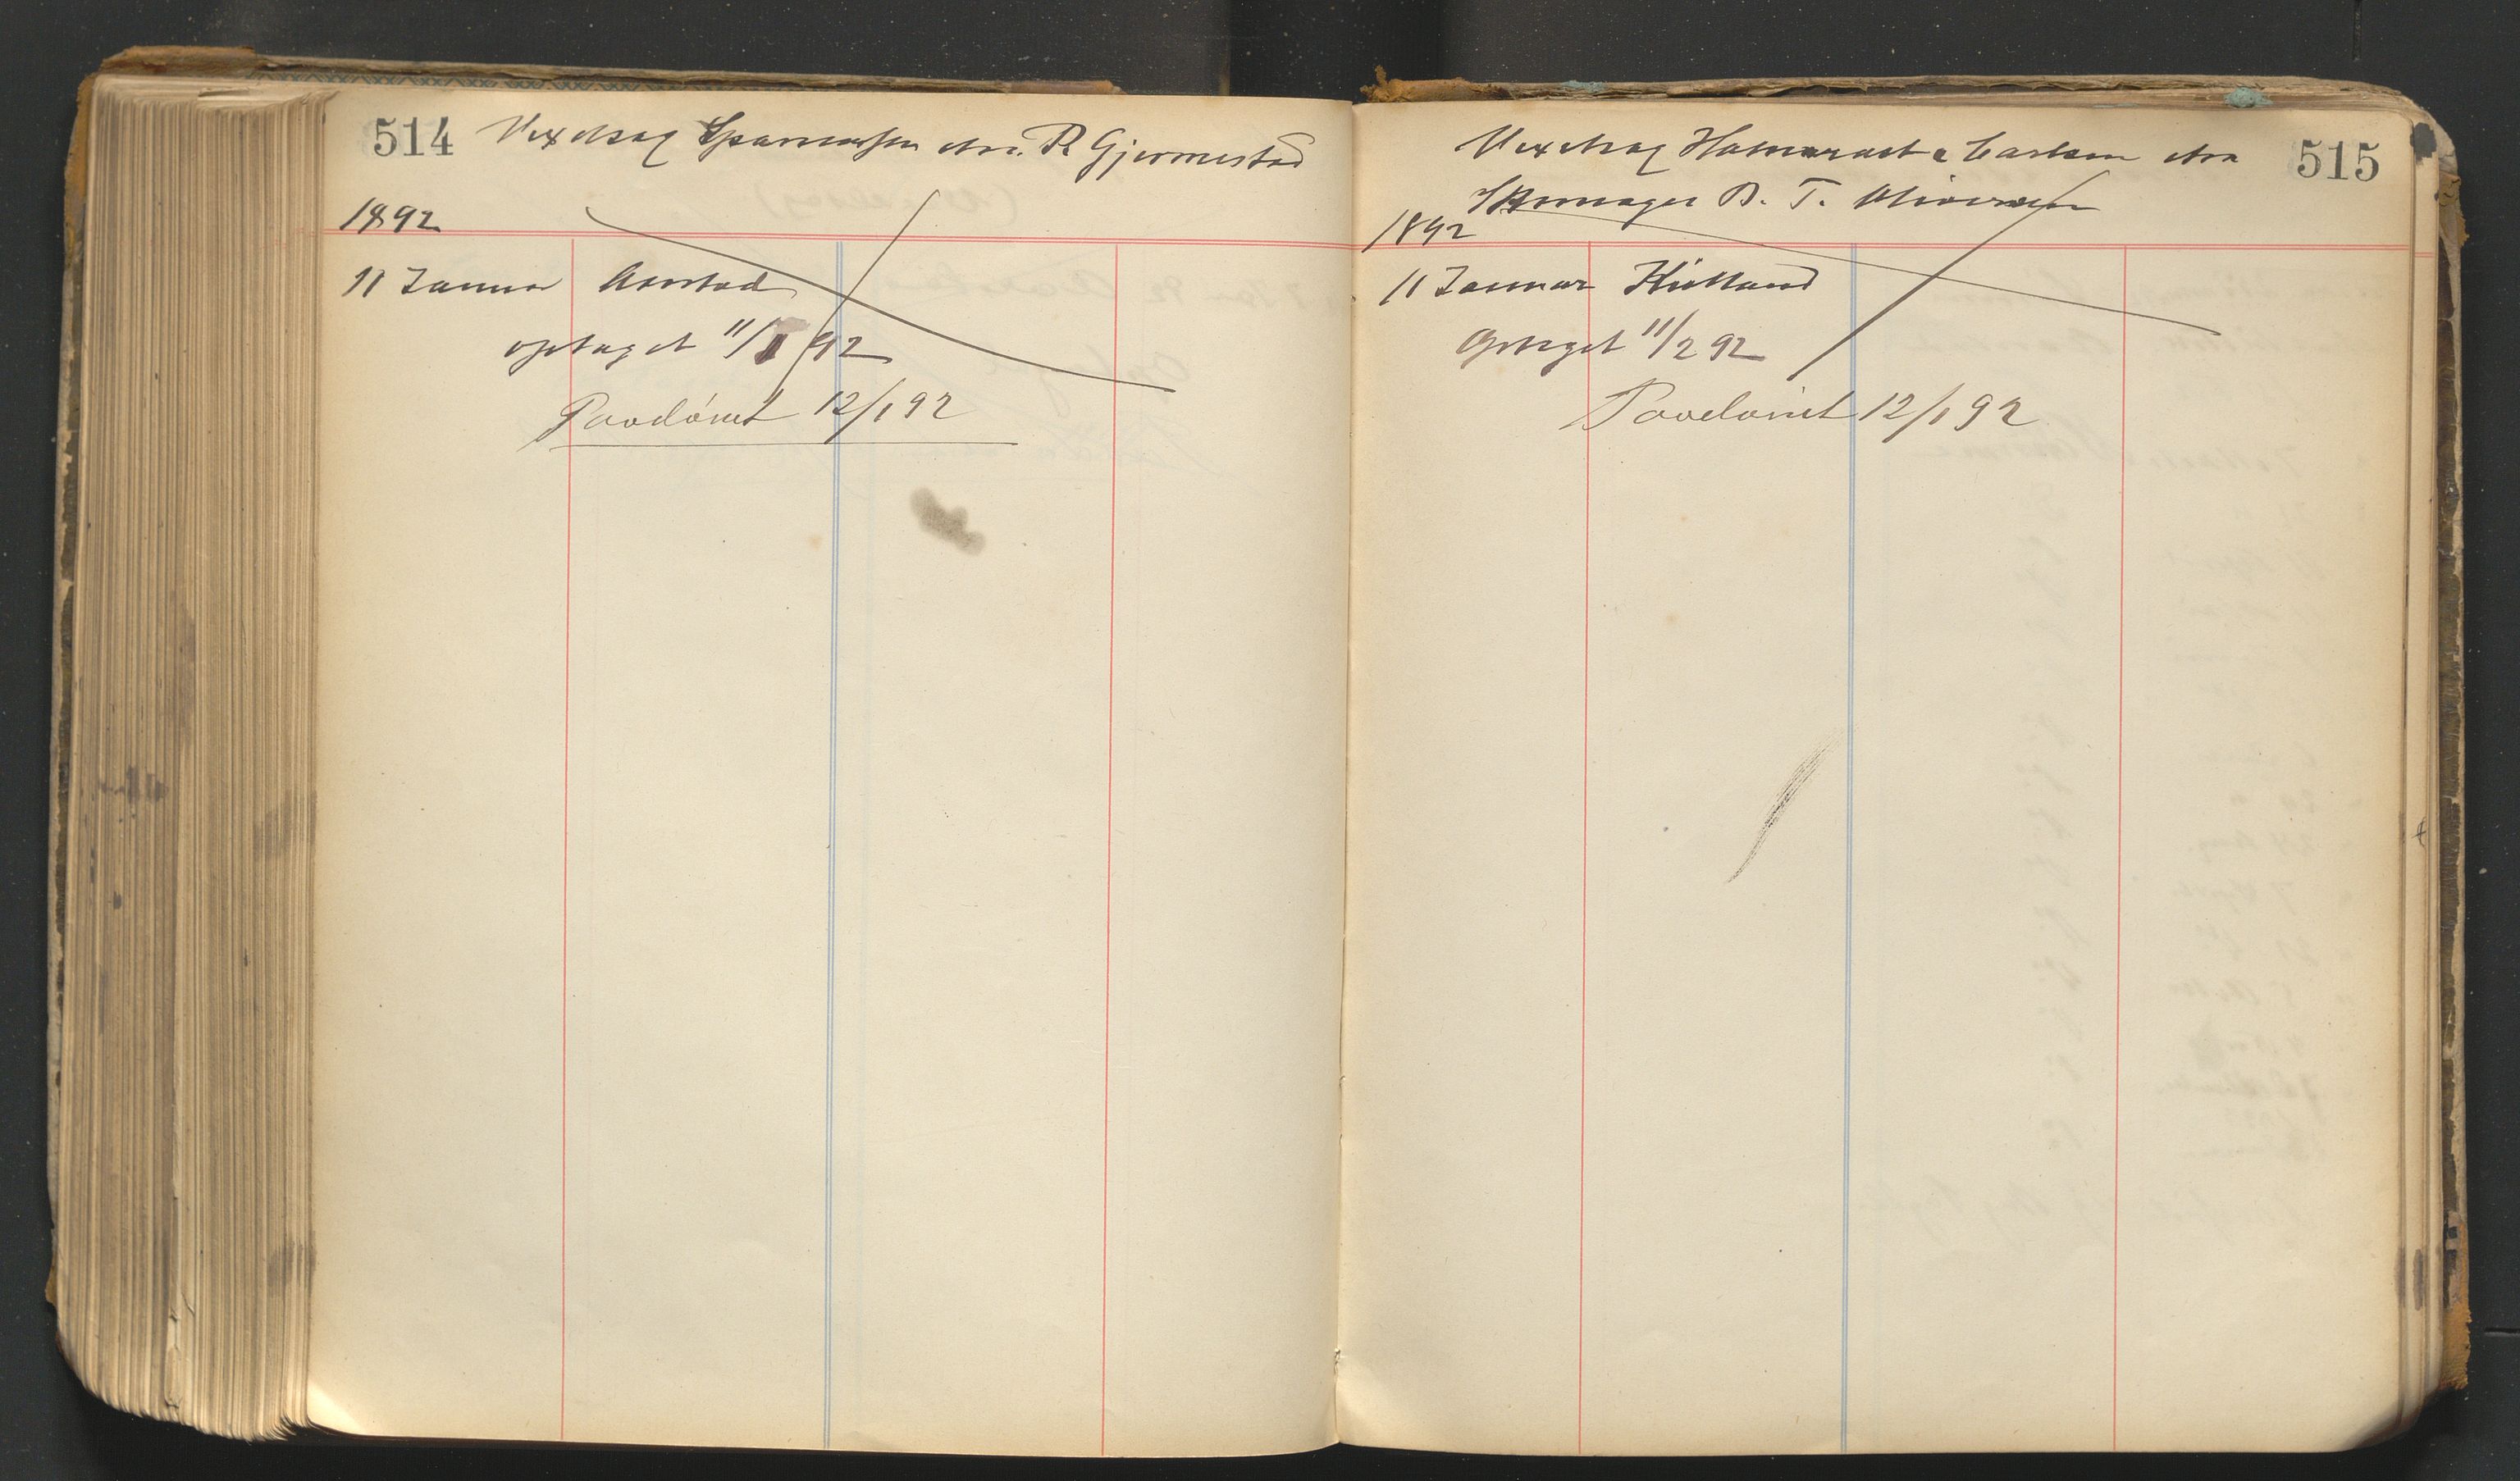 514 Vexelsag Sparcassen ctra. R Gjermestad
1892
11 Januar Aarstad
optaget 11/1 92
Paadömt 12/1 92
Vexelsag & Carlsen ctra 515
Skomager B. T.
1892
11 Januar Kielland
Optaget 11/2 92
Paadömt 12/1 92